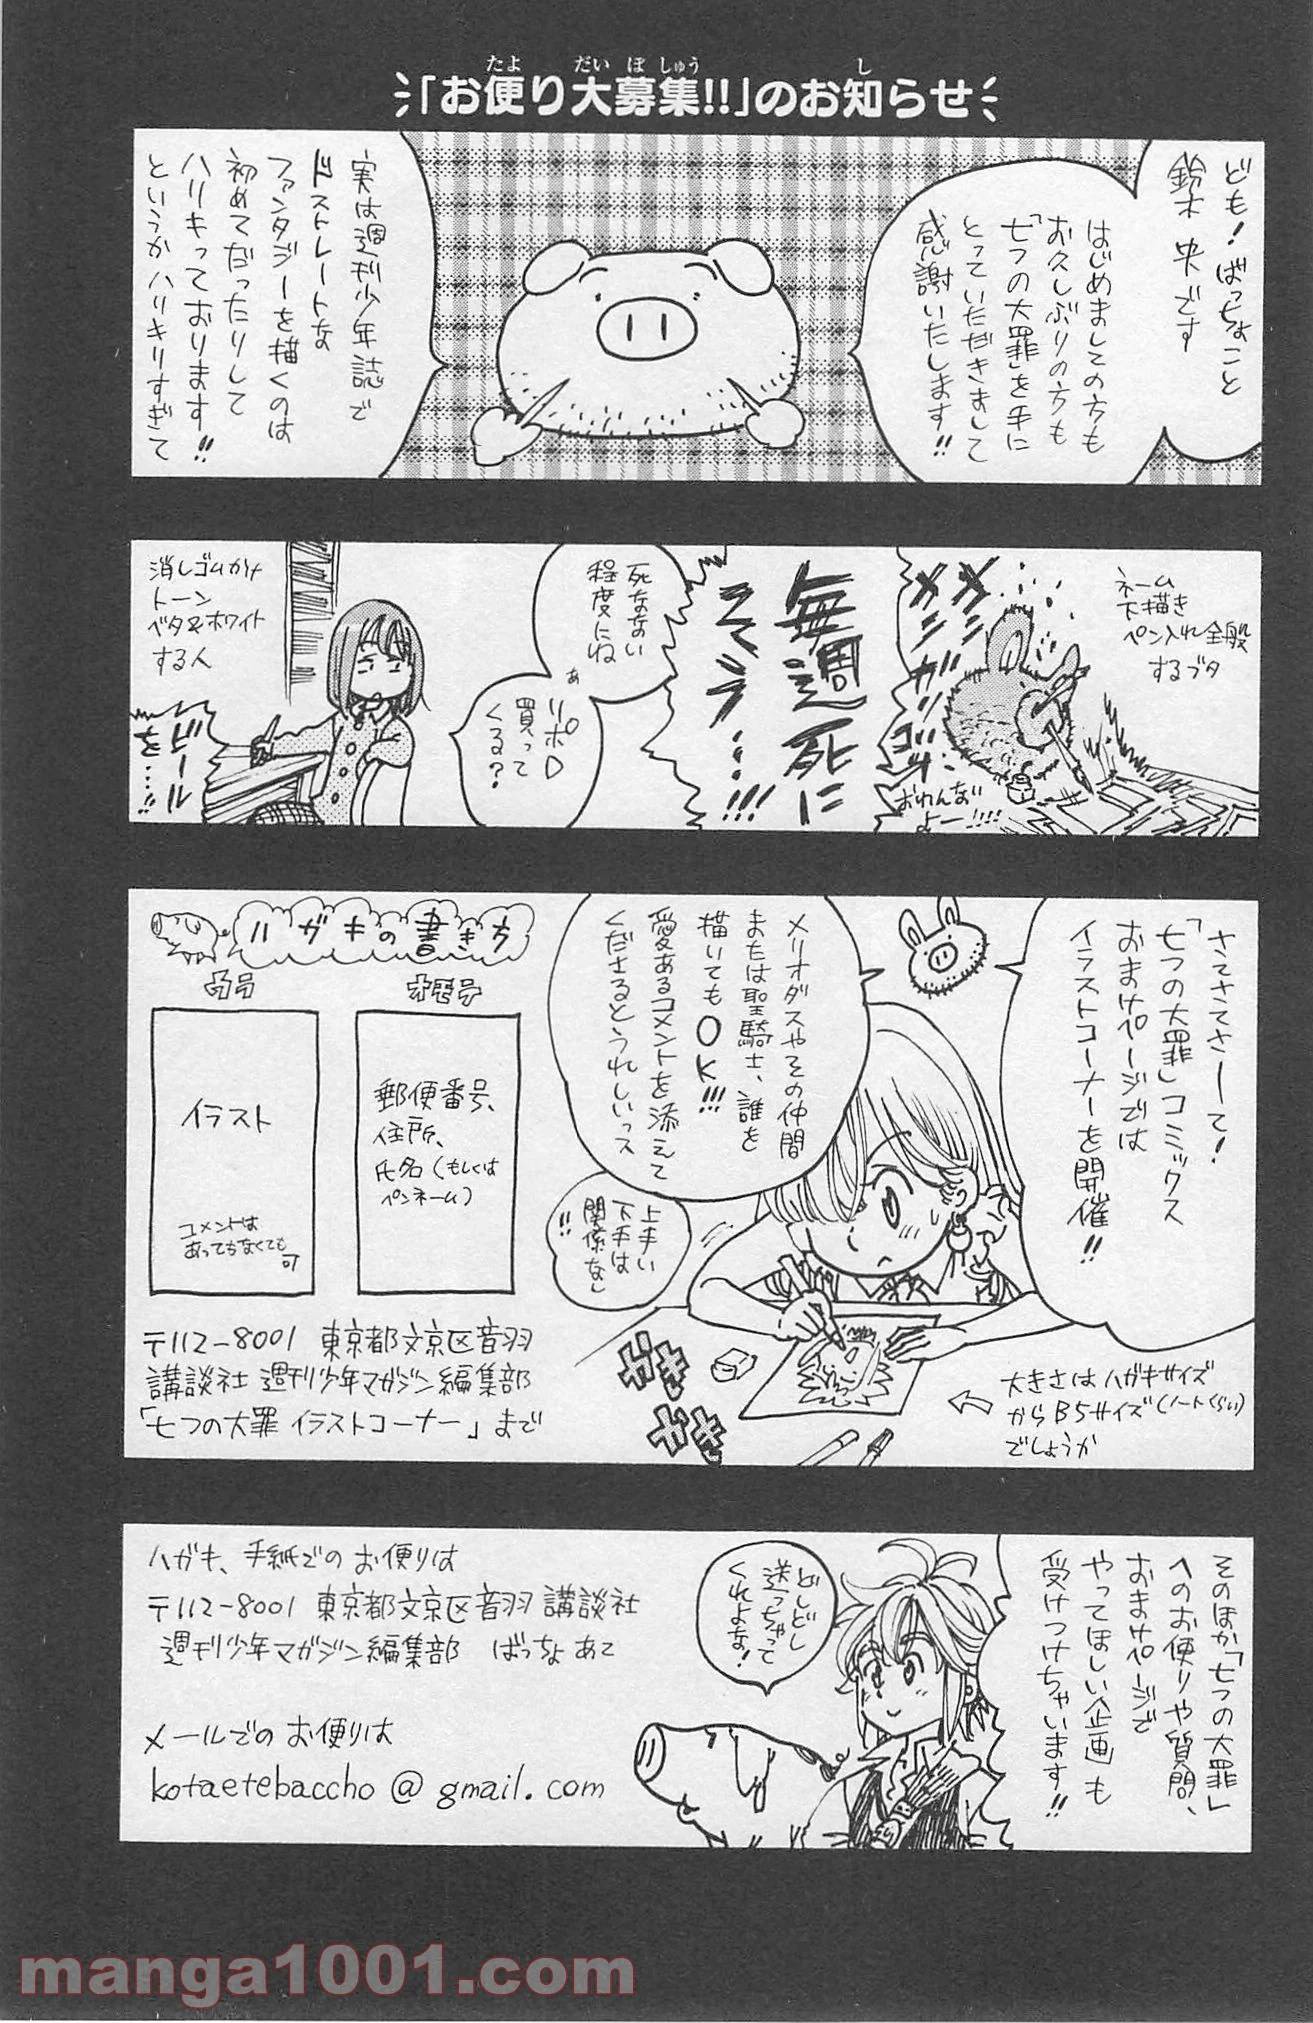 「お便り大募集!!」のお知らせ
ども!ばっちょこと
鈴木央です
はじめましての方も
お久しぶりの方も
「七つの大罪」を手に
とっていただきまして
感謝いたします!!
実は週刊少年誌で
ドストレートな
ファンタジーを描くのは
初めてだったりして
ハリキっております!!
というかハリキリすぎて
ネーム
下描き
ペン入れ全般
するブタ
おわんない
よー!!!!
毎週死に
そう…!!!
死なない
程度にね
あ
リポD
買って
くる?
消しゴムかけ
トーン
ベタ&ホワイト
する人
ビール
も…!!
さてさてさーて!
「七つの大罪」コミックス
おまけページでは
イラストコーナーを開催!!
メリオダスやその仲間
または聖騎士、誰を
描いてもOK!!!
愛あるコメントを添えて
くださるとうれしいっス
上手い
下手は
関係なし
!!
ギギ
ギギ
大きさはハガキサイズ
からB5サイズ(ノートくらい)
でしょうか
ハガキの書き方
オモテ
ウラ
郵便番号、
住所、
氏名(もしくは
ペンネーム)
イラスト
コメントは
あってもなくても
可
〒112-8001 東京都文京区音羽
講談社 週刊少年マガジン編集部
「七つの大罪 イラストコーナー」まで
そのほか「七つの大罪」
へのお便りや質問、
おまけページで
やってほしい企画も
受けつけちゃいます!!
どしどし
送っちゃって
くれよな!
ハガキ、手紙でのお便りは
〒112-8001 東京都文京区音羽 講談社
週刊少年マガジン編集部 ばっちょあて
メールでのお便りは
kotaetebaccho@gmail.com
manga1001.com